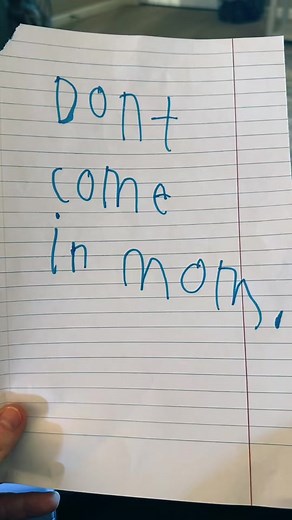 Dont
come
in mom.